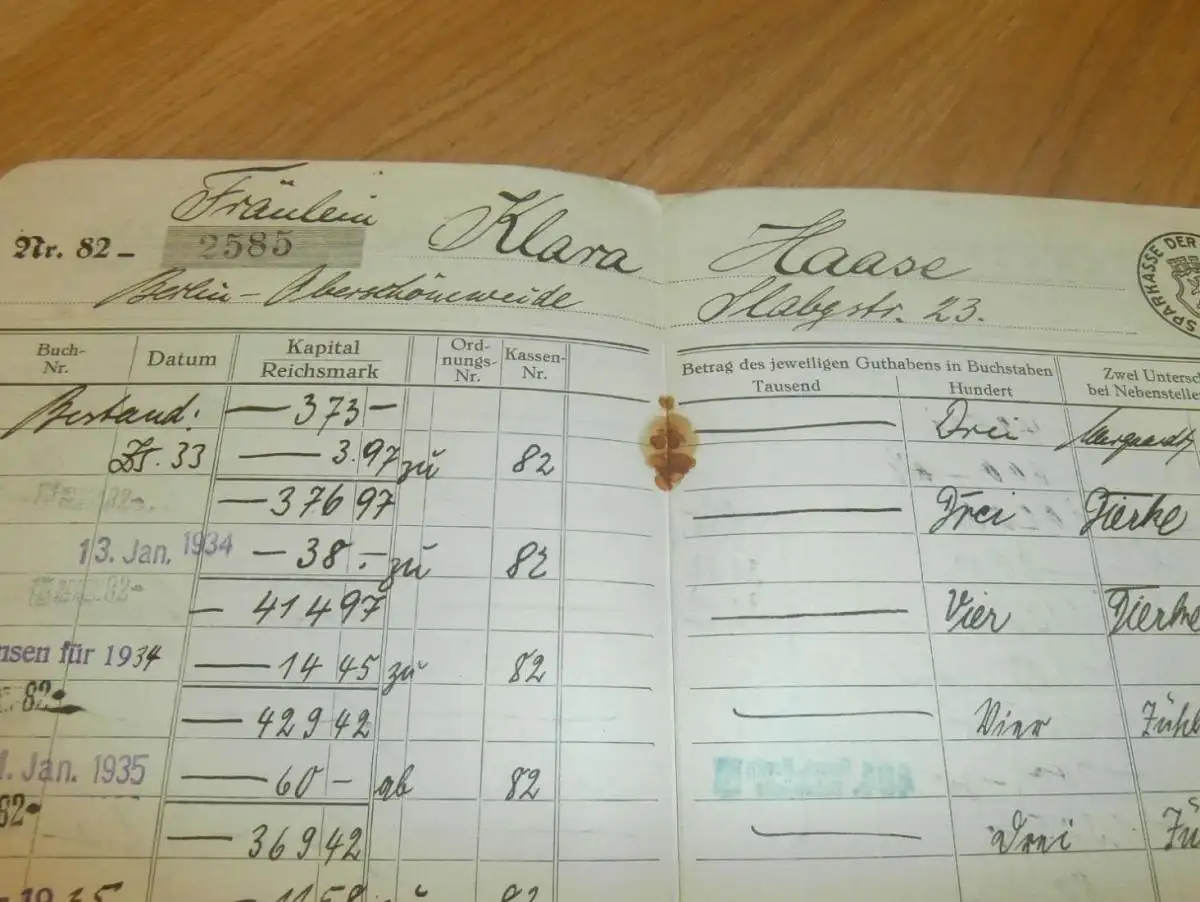 Fräulein Klara Haase
Nr. 82 – 2585
Berlin – Oberschöneweide 23.
SPARKASSE DER
Buch-Nr. Datum Kapital Reichsmark Ord-nungs-Nr. Kassen-Nr. Betrag des jeweiligen Guthabens in Buchstaben Tausend Hundert Zwei Untersch bei Nebenstelle
Bestand: — 373 — — Drei
Zs. 33 — 3.97 zu 82
— 376 97 — Drei Tierke
13. Jan. 1934 — 38.- zu 82
— 414 97 — Vier Tierke
nsen für 1934 — 14 45 zu 82
82 — 429 42 — Vier
1. Jan. 1935 — 60 – ab 82
82 — 369 42 — Drei
82